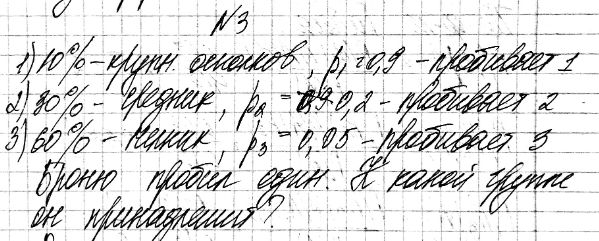 №3
1) 10% - крупн осколков, p₁ = 0,9 - пробивает 1
2) 30% - средних, p₂ = 0,2 - пробивает 2
3) 60% - мелких, p₃ = 0,05 - пробивает 3
Броню пробил один. К какой группе
он принадлежит?